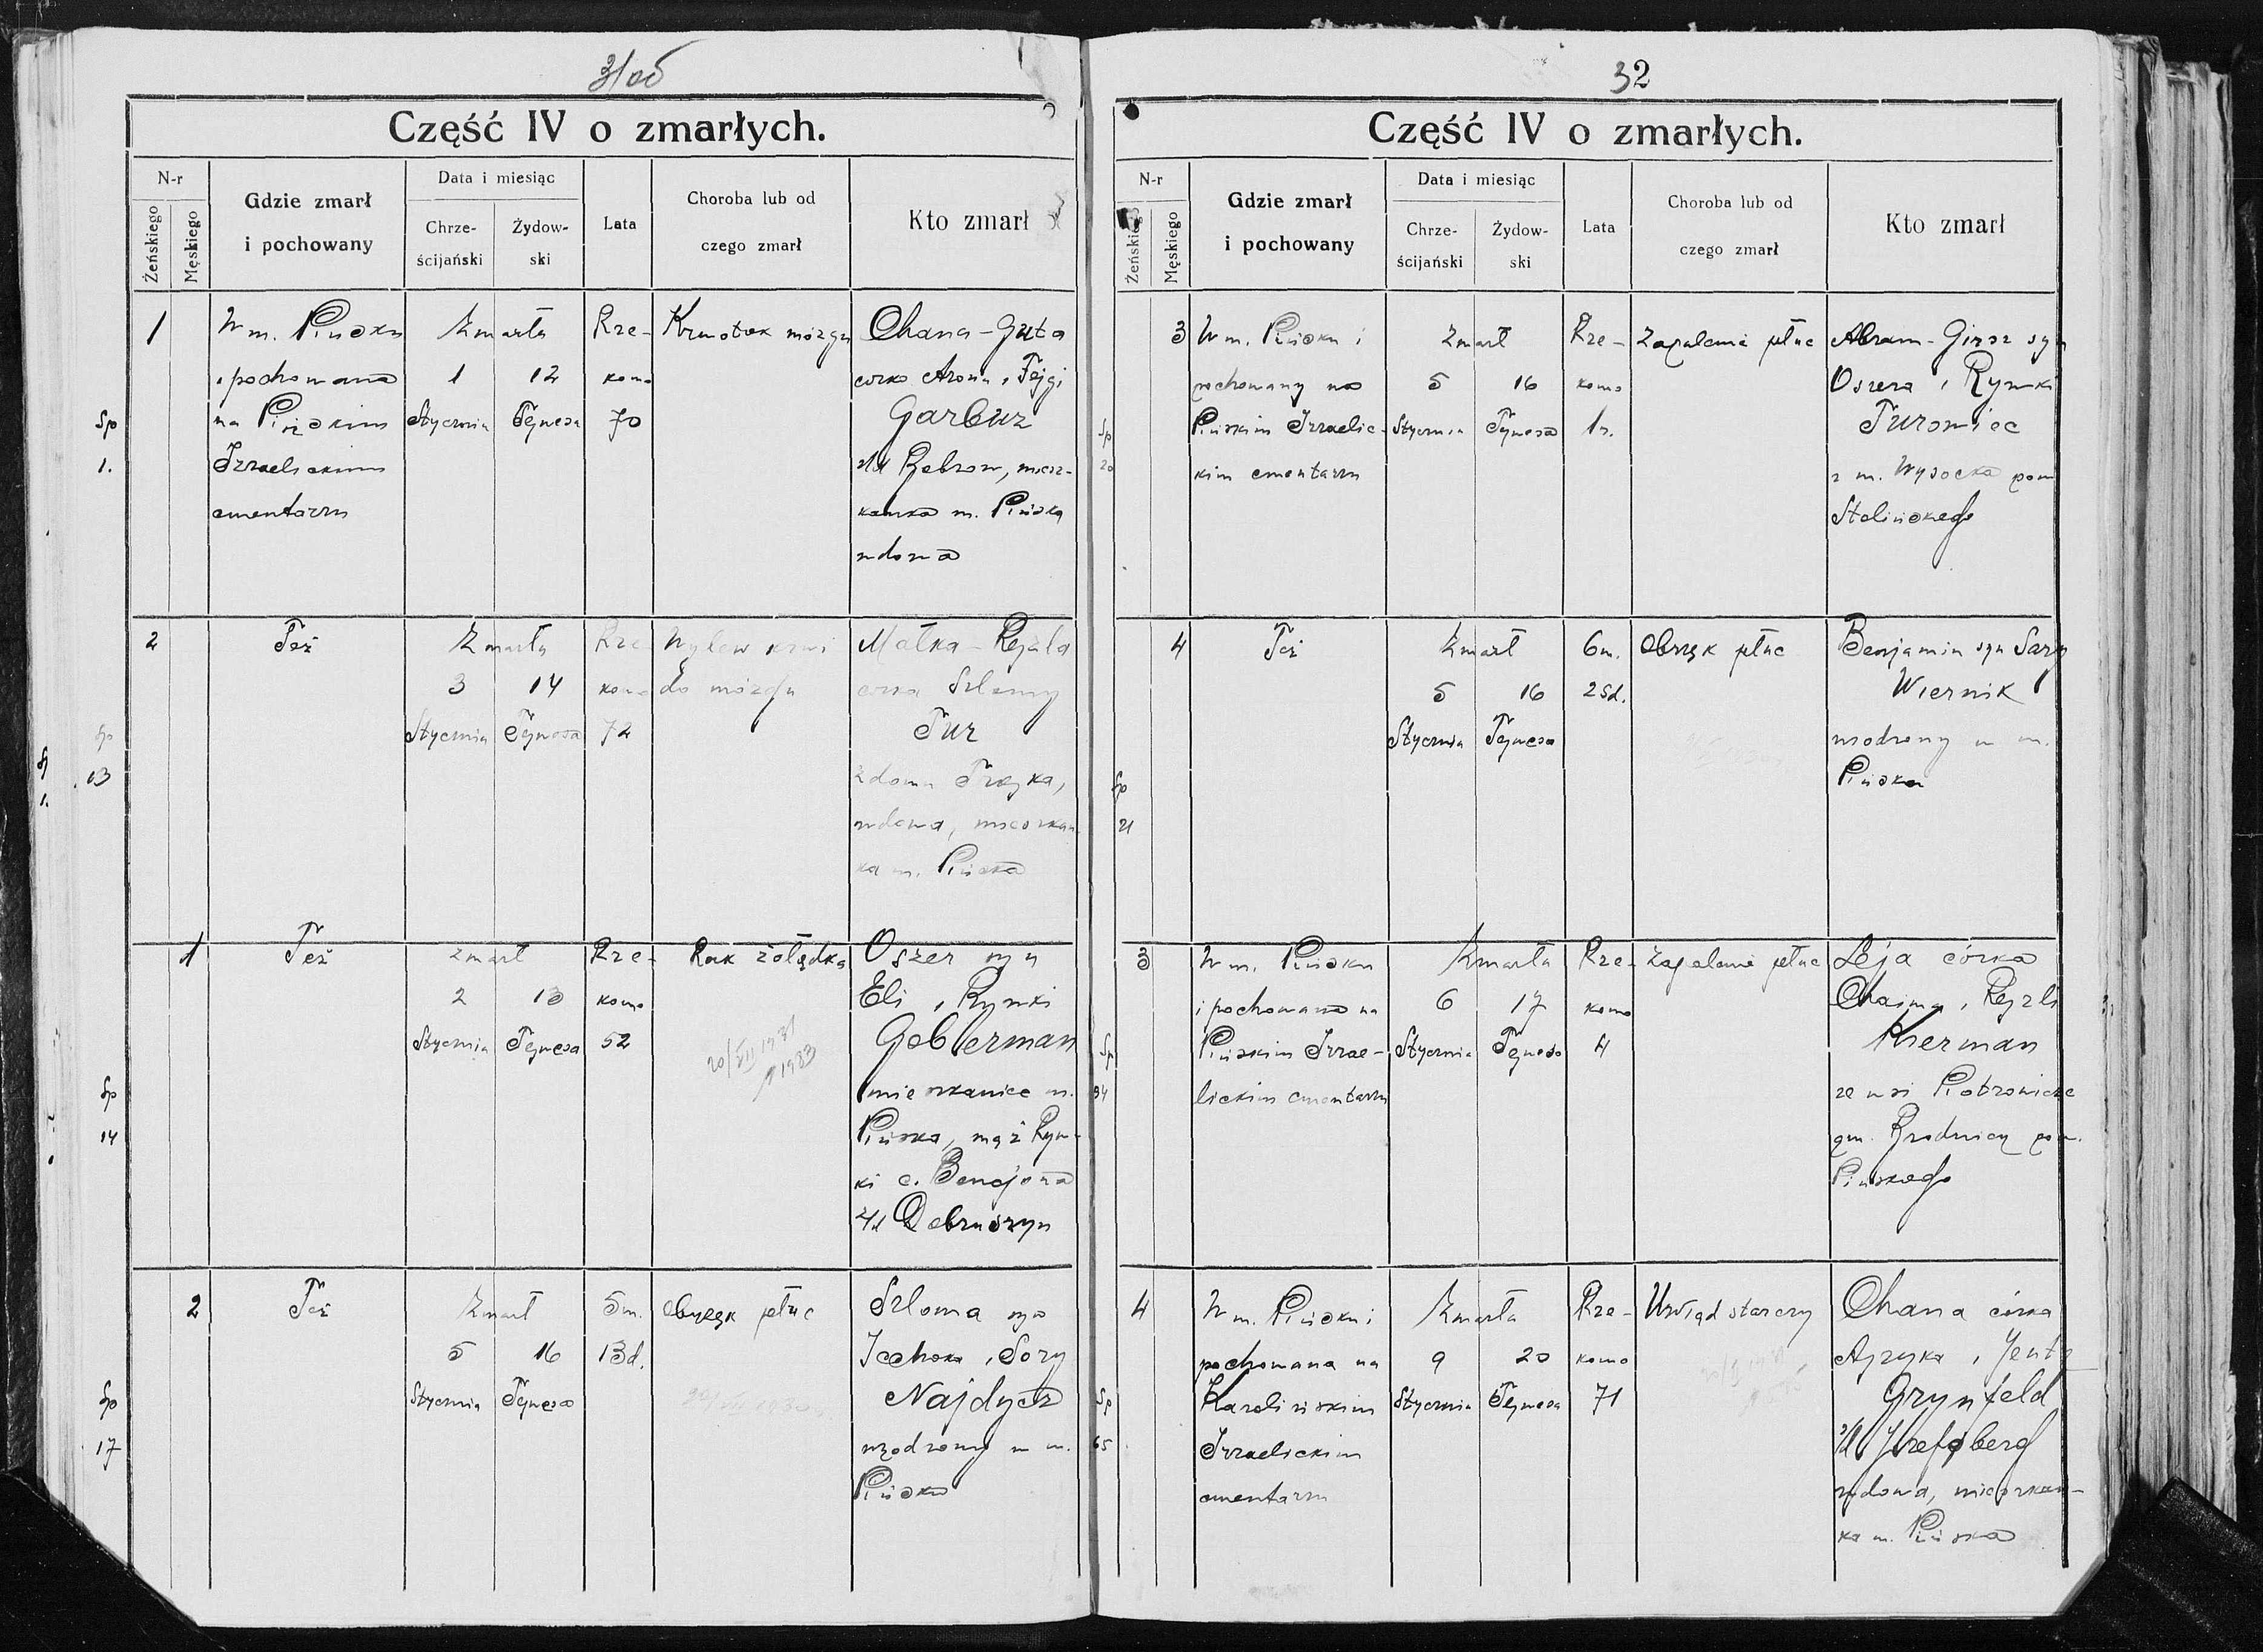 31об
Część IV o zmarłych.
N-r
Żeńskiego
Męskiego
Gdzie zmarł
i pochowany
Data i miesiąc
Chrze-
ścijański
Żydow-
ski
Lata
Choroba lub od
czego zmarł
Kto zmarł
Sp
1.
1
W m. Pińsku
i pochowana
na Pińskim
Izraelickim
cmentarzu
Zmarła
1
12
Stycznia
Tejwesa
Rze-
komo
70
Krwotok mózgu
Chana-Guta
corka Arona i Fejgi
Garbuz
z/d Bebrow, miesz-
kanka m. Pińska
wdowa
Sp
13
2
Też
Zmarła
3
14
Stycznia
Tejwesa
Rze
komo
72
Wylew krwi
do mózgu
Małka-Rejzla
corka Szlomy
Tur
z domu
wdowa, mieszkan
ka m. Pińska
Sp
14
1
Też
zmarł
2
13
Stycznia
Tejwesa
Rze-
komo
52
Rak żołądka
Oszer syn
Eli i Rywki
Goberman
mieszkaniec m.
Pińska, mąż Ryw-
ki c. Bencjona
z/d Dobruszyn
Sp
17
2
Też
Zmarł
5
16
Stycznia
Tejwesa
5m.
13d.
Obrzęk płuc
Szloma syn
Icchoka i Sory
Najdycz
urodzony w m.
Pińsku
32
Część IV o zmarłych.
N-r
Żeńskiego
Męskiego
Gdzie zmarł
i pochowany
Data i miesiąc
Chrze-
ścijański
Żydow-
ski
Lata
Choroba lub od
czego zmarł
Kto zmarł
Sp
20
3
W m. Pińsku i
pochowany na
Pińskim Izraelic-
kim cmentarzu
Zmarł
5
16
Stycznia
Tejwesa
Rze-
komo
1r.
Zapalenie płuc
Abram-Girsz syn
Oszera i Rywki
Turowiec
z m. Wysocka pow
Stolińskiego
Sp
21
4
Też
Zmarł
5
16
Stycznia
Tejwesa
6m.
25d.
Obrzęk płuc
Benjamin syn Sary
Wiernik
urodzony w m.
Pińsku
Sp
34
3
W m. Pińsku
i pochowana na
Pińskim Izrae-
lickim cmentarzu
Zmarła
6
17
Stycznia
Tejwesa
Rze-
komo
4
Zapalenie płuc
Leja córka
Chaima i Rejzli
Kierman
ze wsi Piotrowicze
gm. Brodnicy pow.
Pińskiego
Sp
65
4
W m. Pińsku i
pochowana na
Karolińskim
Izraelickim
cmentarzu
Zmarła
9
20
Stycznia
Tejwesa
Rze-
komo
71
Uwiąd starczy
Chana córka
Ajzyka i Jenty
Grynfeld
z/d
wdowa, mieszkan-
ka m. Pińska